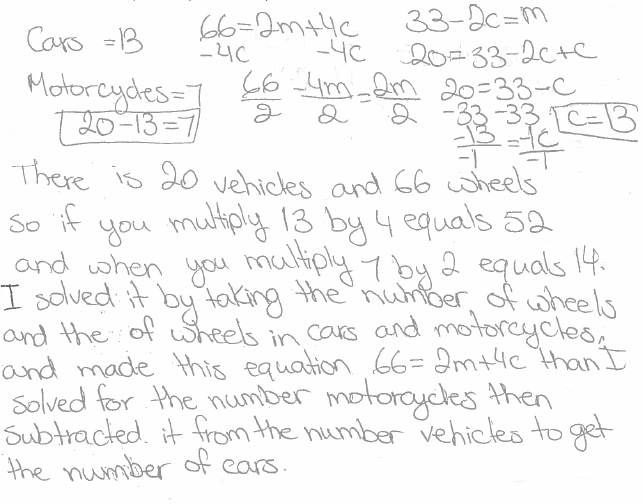 Cars = 13
Motorcycles = 7
20-13=7
66=2m+4c
-4c -4c
66/2 -4m/2 = 2m/2
33-2c=m
20=33-2c+c
20=33-c
-33 -33
-13/-1 = -1c/-1
c=13
There is 20 vehicles and 66 wheels
so if you multiply 13 by 4 equals 52
and when you multiply 7 by 2 equals 14.
I solved it by taking the number of wheels
and the of wheels in cars and motorcycles,
and made this equation 66=2m+4c than I
solved for the number motorcycles then
subtracted it from the number vehicles to get
the number of cars.